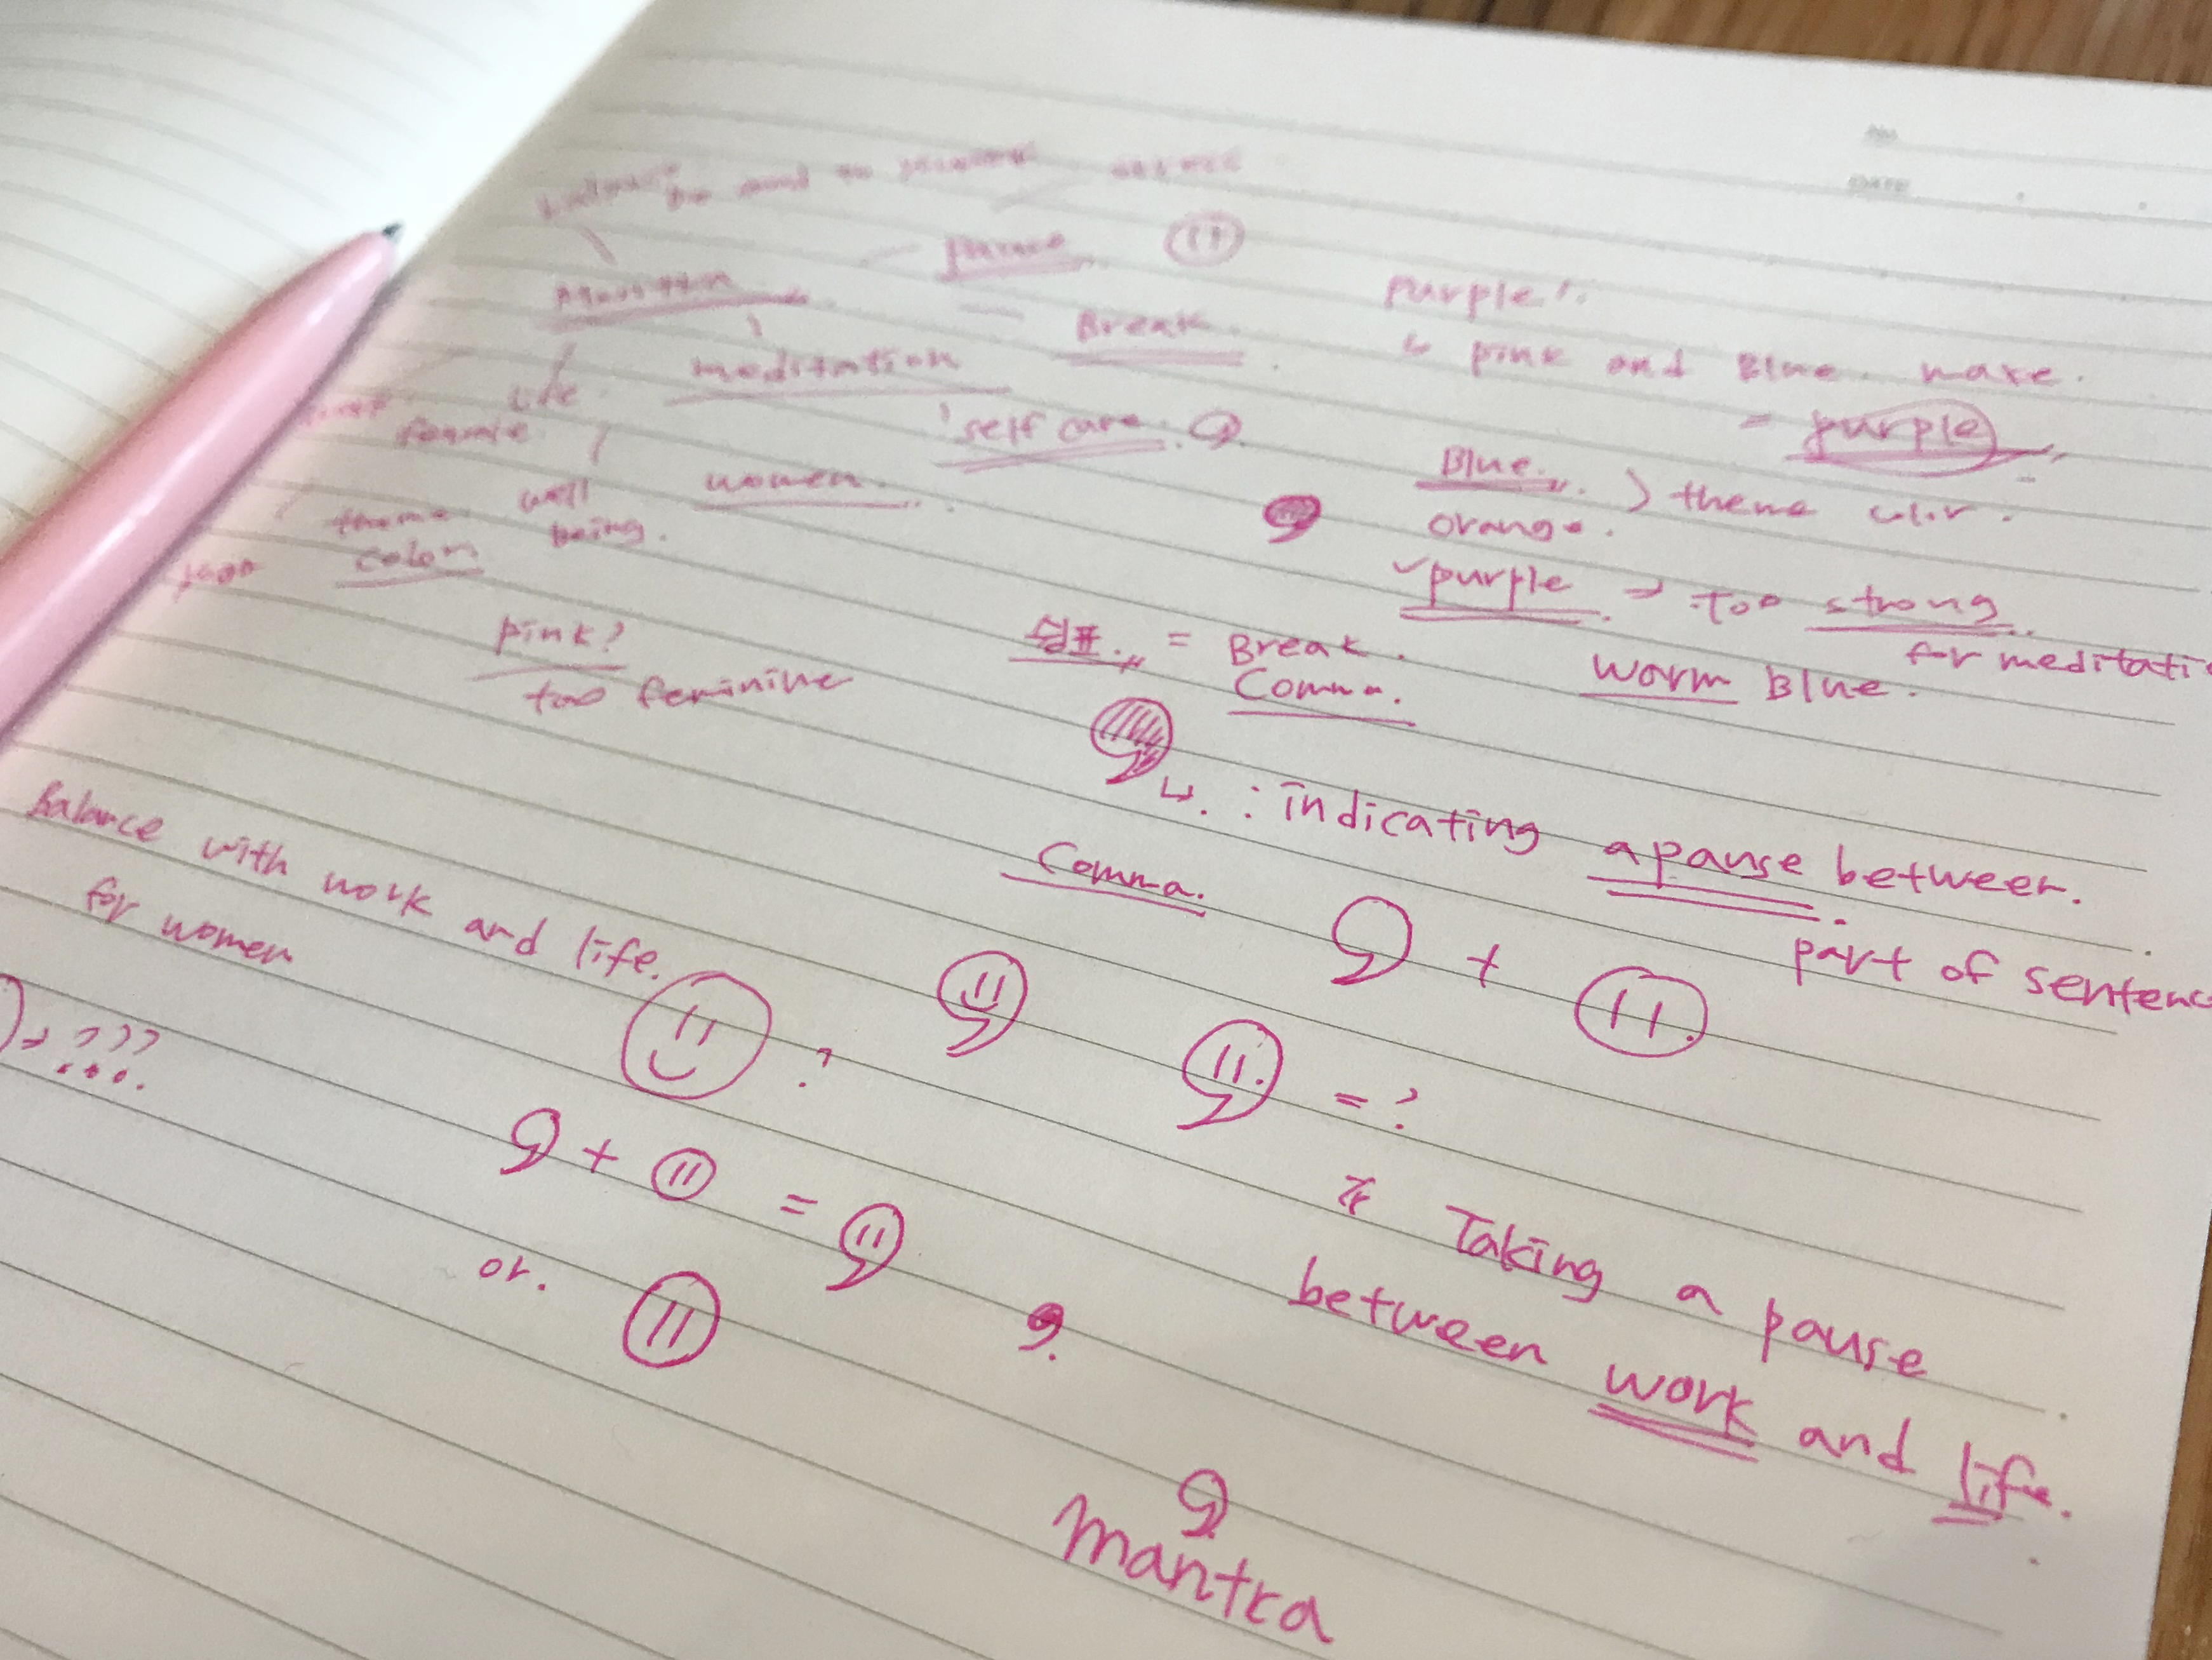 No.
DATE
pause
Break
meditation
self care.
Life
female
women.
well
being.
theme
colors
pink?
too feminine
purple!.
pink and Blue. make.
= purple
Blue.
orange.
theme color.
purple → Too strong
for meditati
worm Blue.
쉼표. = Break.
Comma.
: indicating a pause between.
part of sentenc
Comma.
+
= ?
Balance with work and life.
for women
→ ???
?
+ =
or.
* Taking a pause
between work and life.
mantra